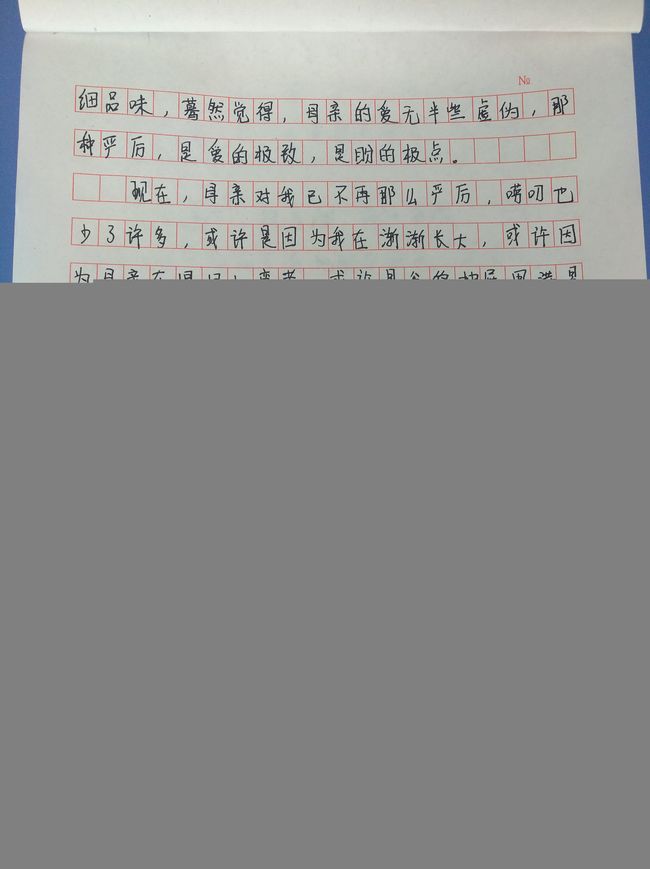 №
细品味，蓦然觉得，母亲的爱无半些虚伪，那
种严厉，是爱的极致，是盼的极点。
现在，母亲对我已不再那么严厉，唠叨也
少了许多，或许是因为我在渐渐长大，或许因
为母亲在